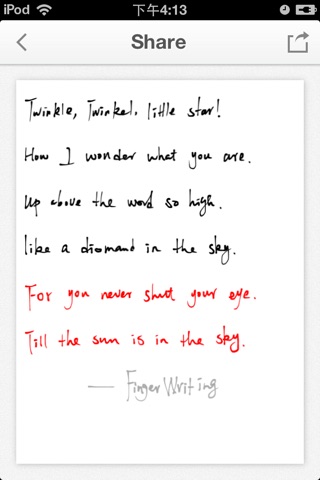 iPod 下午4:13
Share
Twinkle, Twinkel, little star!
How I wonder what you are.
Up above the word so high.
like a diomand in the sky.
For you never shut your eye.
Till the sun is in the sky.
— Finger Writing